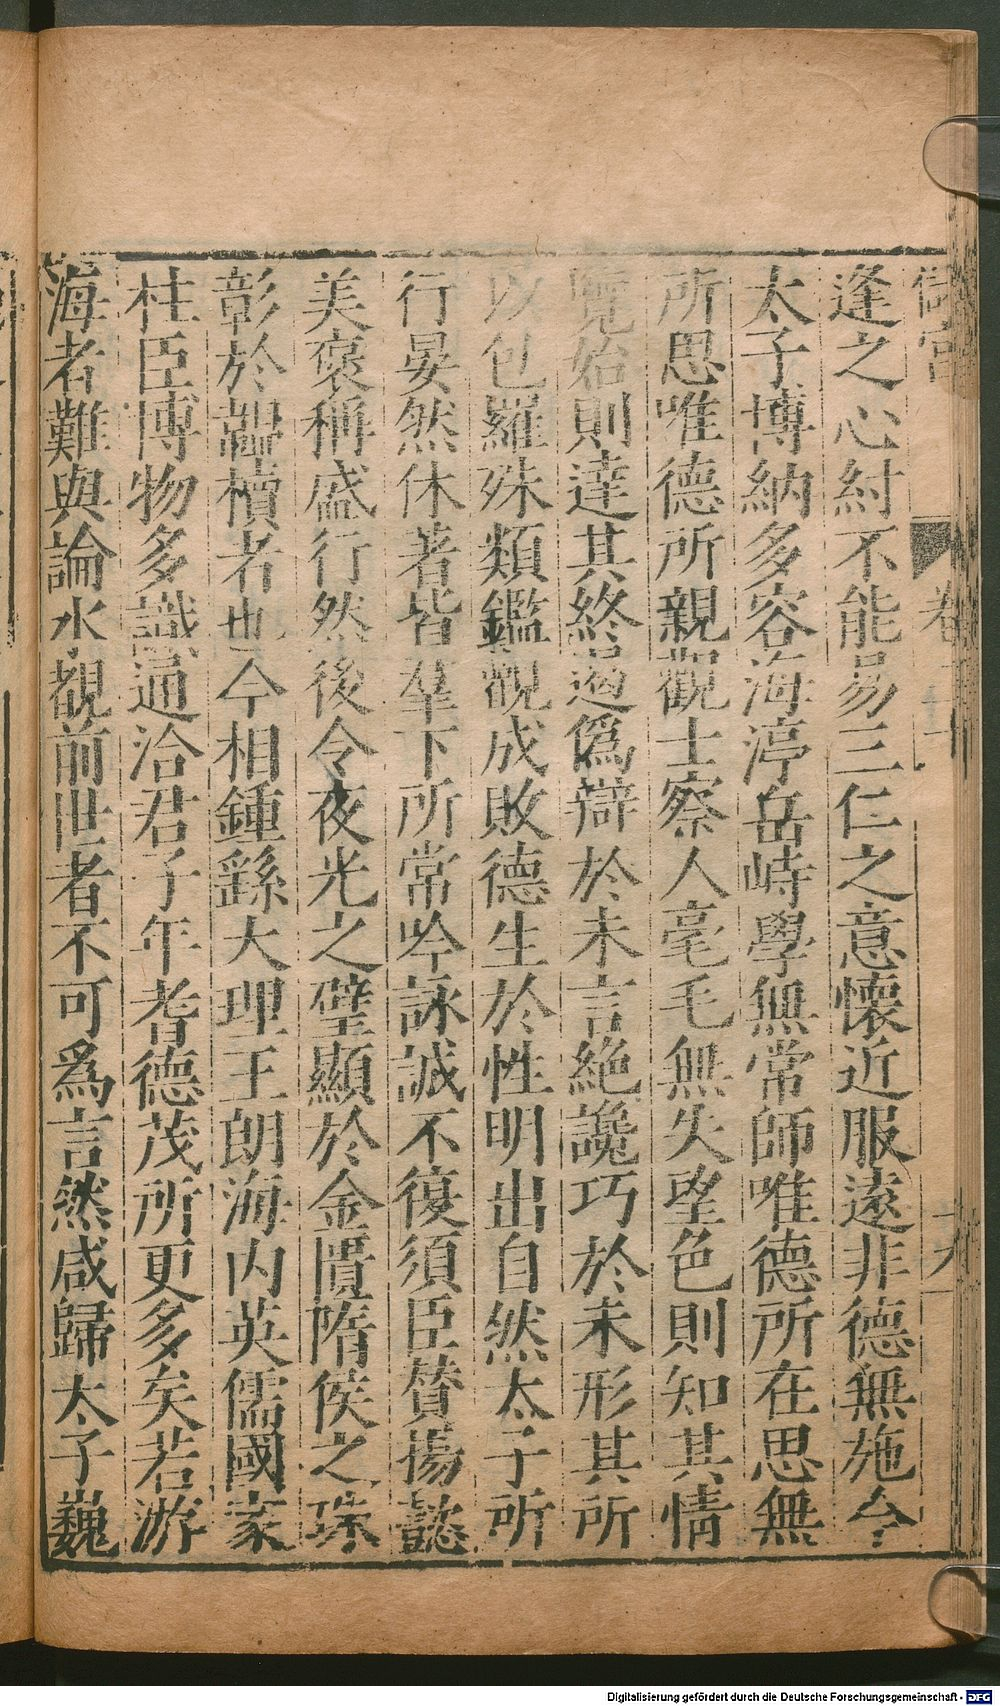 儲宮
卷
十九
逢之心紂不能易三仁之意懷近服遠非德無施今
太子博納多容海渟岳峙學無常師唯德所在思無
所思唯德所親觀士察人毫毛無失望色則知其情
覽始則達其終遏偽辯於未言絶讒巧於未形其所
以包羅殊類鑑觀成敗德生於性明出自然太子所
行晏然休著皆羣下所常吟詠誠不復須臣贊揚懿
美褒稱盛行然後令夜光之璧顯於金匱隋侯之珠
彰於韞櫝者也今相鍾繇大理王朗海内英儒國家
柱臣博物多識通洽君子年耆德茂所更多矣若游
海者難與論水觀前世者不可爲言然咸歸太子巍
Digitalisierung gefördert durch die Deutsche Forschungsgemeinschaft - DFG